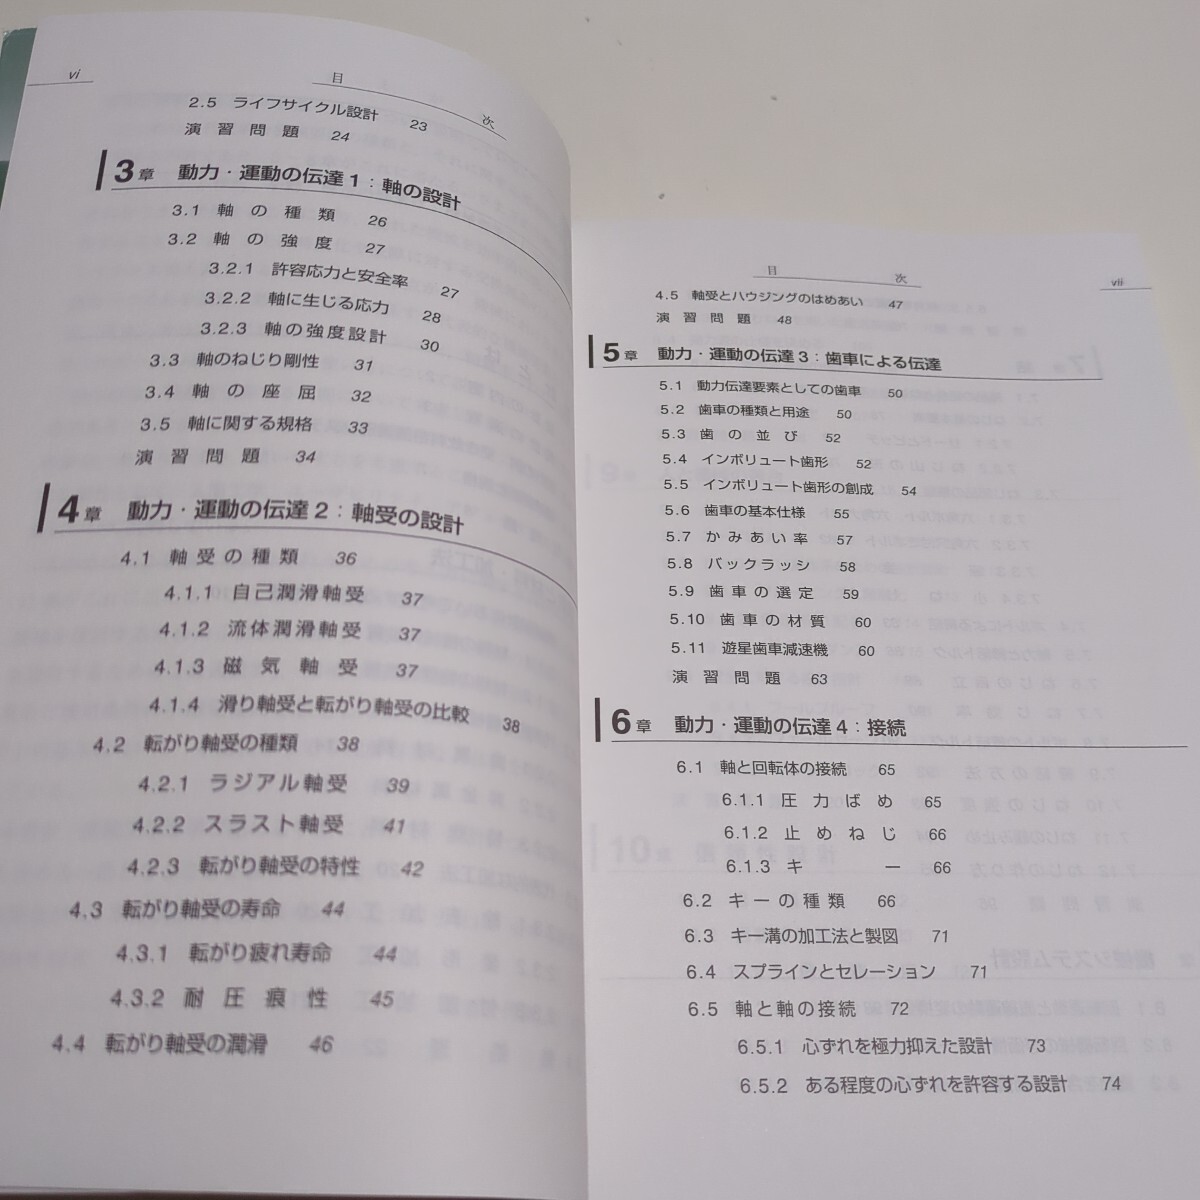 vi
目 次
2.5 ライフサイクル設計 23
演習問題 24
3章 動力・運動の伝達1：軸の設計
3.1 軸の種類 26
3.2 軸の強度 27
3.2.1 許容応力と安全率 27
3.2.2 軸に生じる応力 28
3.2.3 軸の強度設計 30
3.3 軸のねじり剛性 31
3.4 軸の座屈 32
3.5 軸に関する規格 33
演習問題 34
4章 動力・運動の伝達2：軸受の設計
4.1 軸受の種類 36
4.1.1 自己潤滑軸受 37
4.1.2 流体潤滑軸受 37
4.1.3 磁気軸受 37
4.1.4 滑り軸受と転がり軸受の比較 38
4.2 転がり軸受の種類 38
4.2.1 ラジアル軸受 39
4.2.2 スラスト軸受 41
4.2.3 転がり軸受の特性 42
4.3 転がり軸受の寿命 44
4.3.1 転がり疲れ寿命 44
4.3.2 耐圧痕性 45
4.4 転がり軸受の潤滑 46
目 次
vii
4.5 軸受とハウジングのはめあい 47
演習問題 48
5章 動力・運動の伝達3：歯車による伝達
5.1 動力伝達要素としての歯車 50
5.2 歯車の種類と用途 50
5.3 歯の並び 52
5.4 インボリュート歯形 52
5.5 インボリュート歯形の創成 54
5.6 歯車の基本仕様 55
5.7 かみあい率 57
5.8 バックラッシ 58
5.9 歯車の選定 59
5.10 歯車の材質 60
5.11 遊星歯車減速機 60
演習問題 63
6章 動力・運動の伝達4：接続
6.1 軸と回転体の接続 65
6.1.1 圧力ばめ 65
6.1.2 止めねじ 66
6.1.3 キー 66
6.2 キーの種類 66
6.3 キー溝の加工法と製図 71
6.4 スプラインとセレーション 71
6.5 軸と軸の接続 72
6.5.1 心ずれを極力抑えた設計 73
6.5.2 ある程度の心ずれを許容する設計 74